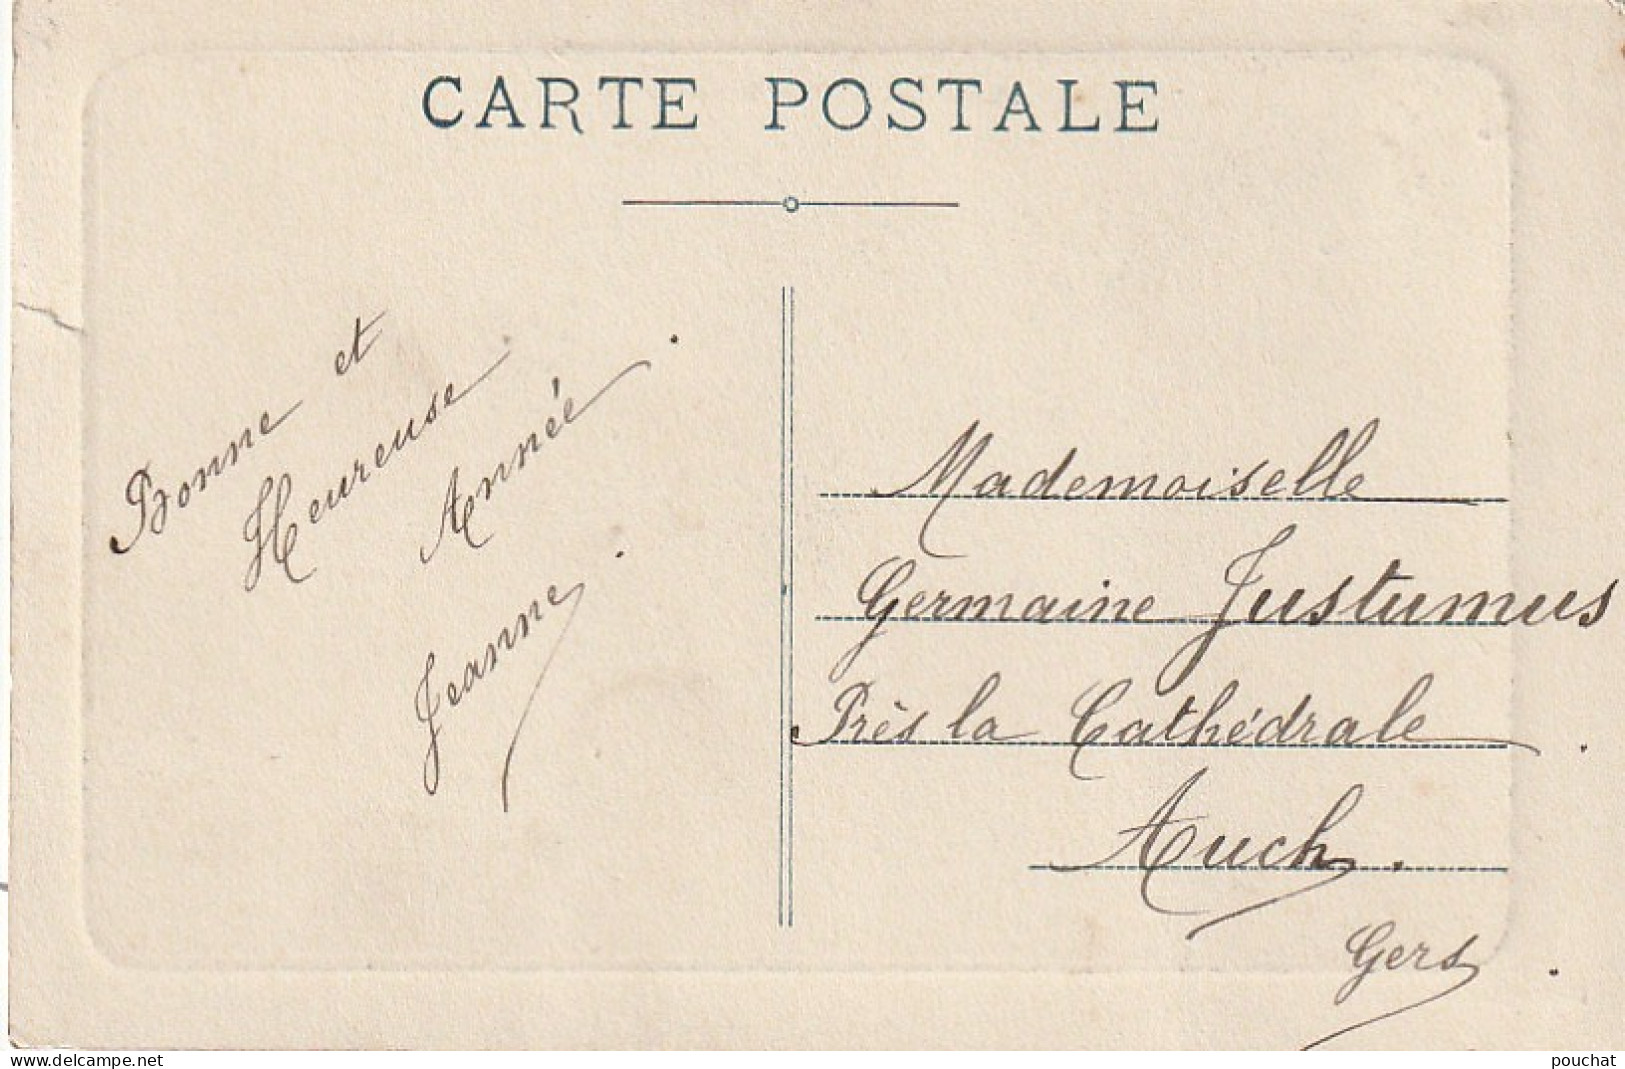 CARTE POSTALE
Bonne et
Heureuse
Année.
Jeanne.
Mademoiselle
Germaine Justumus
Près la Cathédrale.
Auch.
Gers.
www.delcampe.net
pouchat